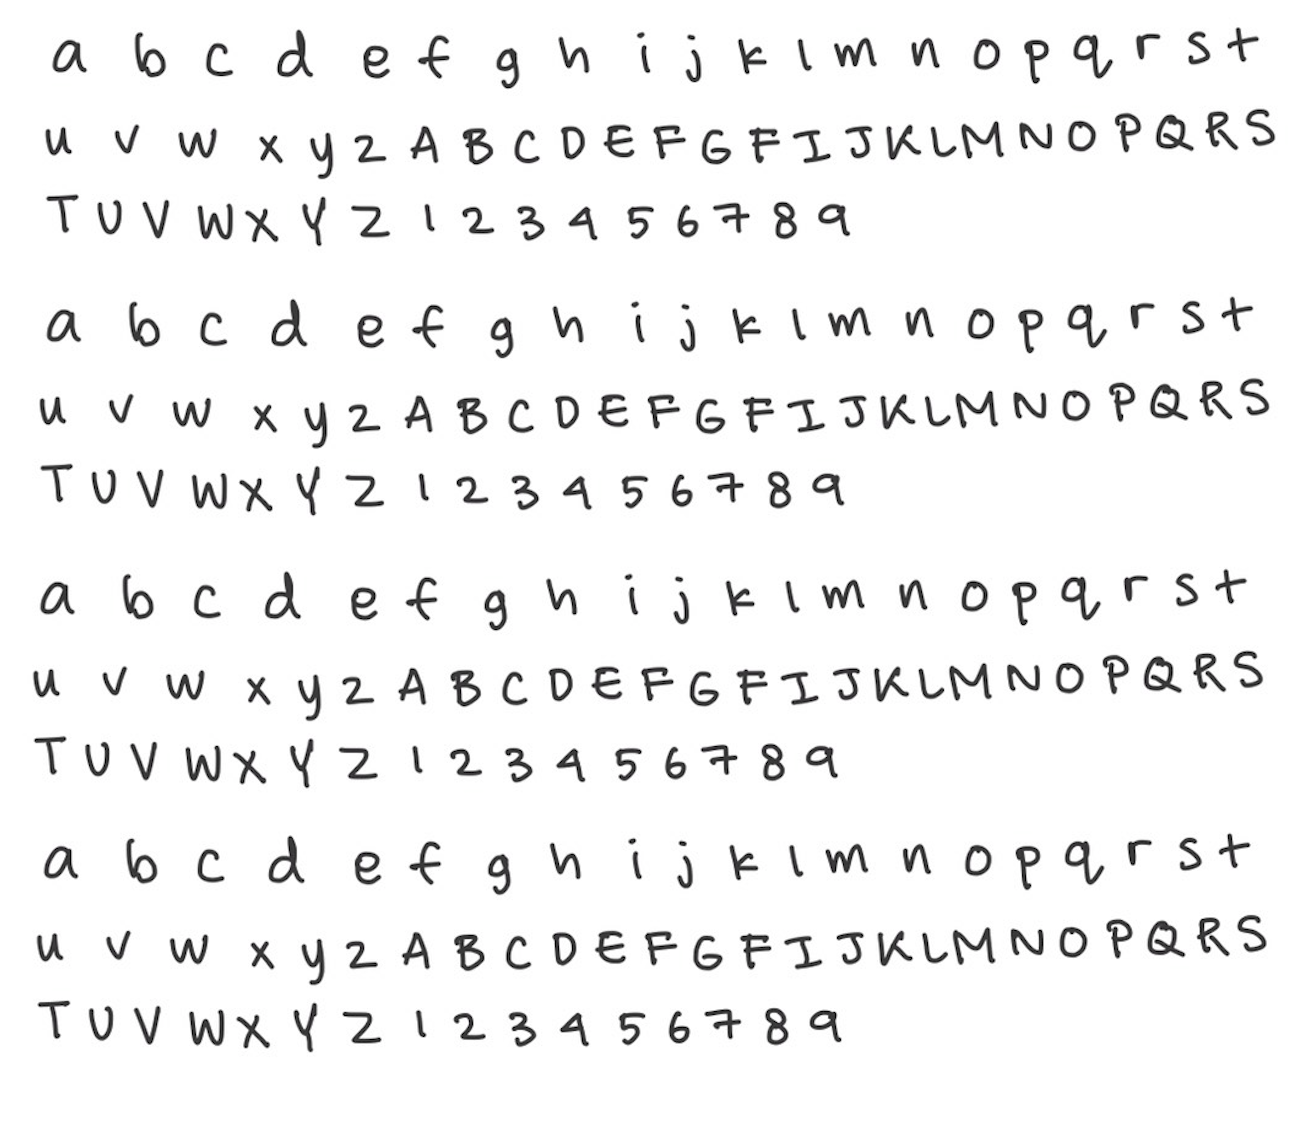 a b c d e f g h i j k l m n o p q r s t
u v w x y z A B C D E F G F I J K L M N O P Q R S
T U V W X Y Z 1 2 3 4 5 6 7 8 9
a b c d e f g h i j k l m n o p q r s t
u v w x y z A B C D E F G F I J K L M N O P Q R S
T U V W X Y Z 1 2 3 4 5 6 7 8 9
a b c d e f g h i j k l m n o p q r s t
u v w x y z A B C D E F G F I J K L M N O P Q R S
T U V W X Y Z 1 2 3 4 5 6 7 8 9
a b c d e f g h i j k l m n o p q r s t
u v w x y z A B C D E F G F I J K L M N O P Q R S
T U V W X Y Z 1 2 3 4 5 6 7 8 9